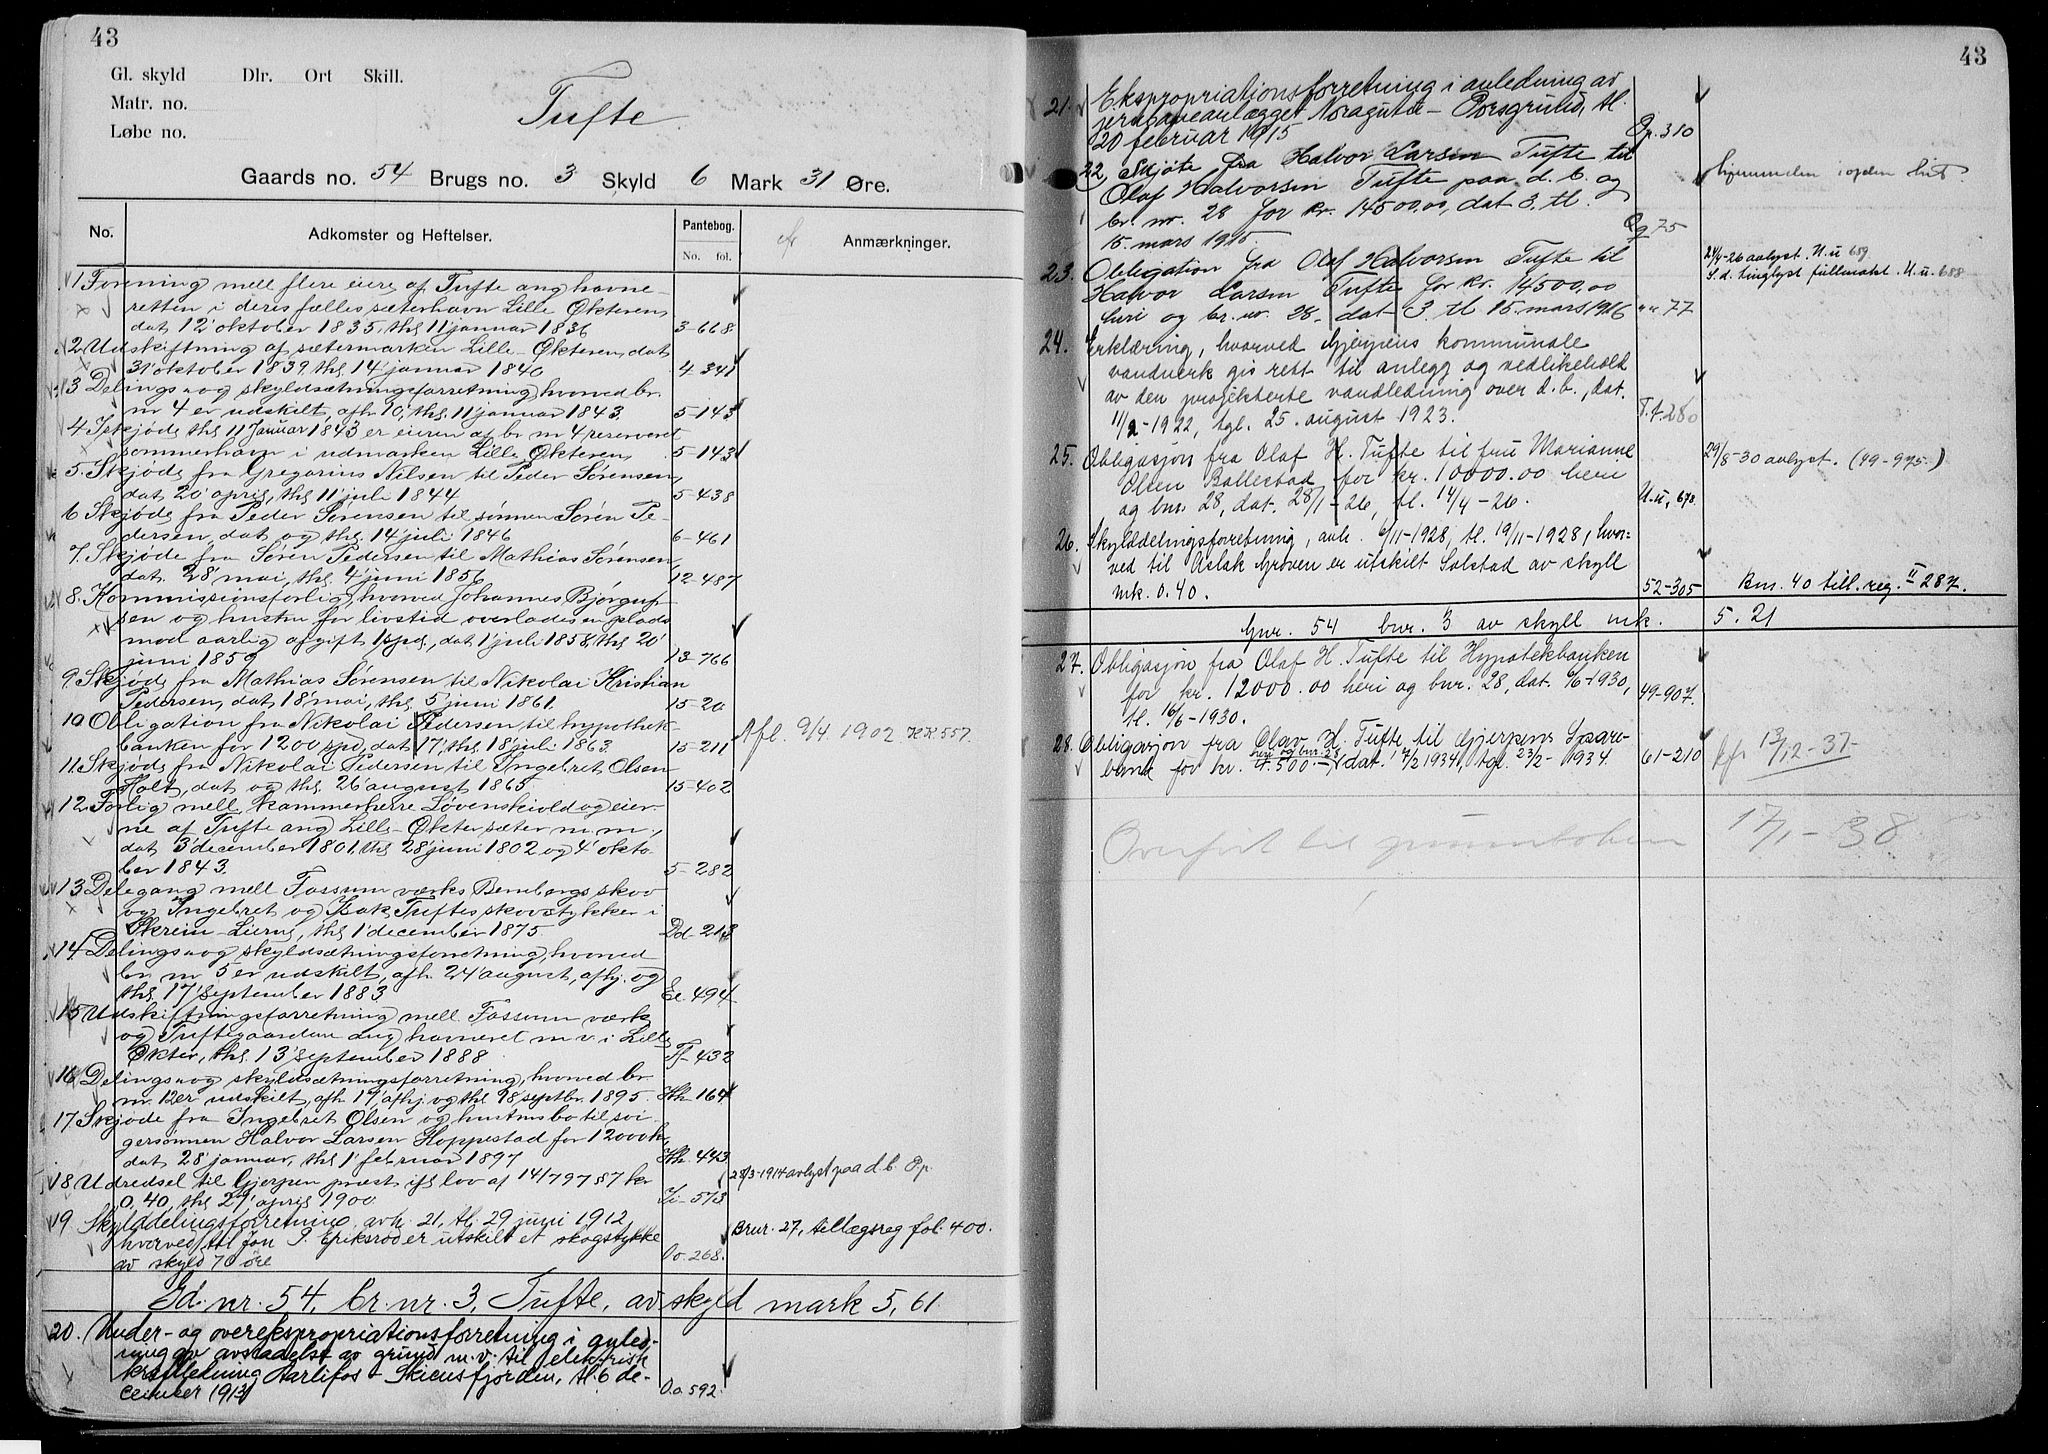 43
Gl. skyld Dlr. Ort Skill.
Matr. no.
Løbe no.
Tufte
Gaards no. 54 Brugs no. 3 Skyld 6 Mark 31 Øre.
No. Adkomster og Heftelser. Pantebog. Anmærkninger.
No. fol.
1 Forening mell flere eiere af Tufte ang havne-
retten i deres fælles sæterhavn Lille Økteren,
dat 12' oktober 1835, thl 11 januar 1836 3-668
2 Udskiftning af sætermarken Lille-Økteren, dat
31' oktober 1839, thl 14' januar 1840 4-341
3 Delings- og skyldsætningsforretning, hvorved br.
nr 4 er udskilt, afh 10', thl. 11 januar 1843. 5-143
4 I skjøde thl 11 Januar 1843 er eieren af br nr 4 reserveret
sommerhavn i udmarken Lille Økteren, 5-143
5. Skjøde fra Gregorius Nilsen til Peder Sørensen,
dat. 20' april, thl 11' juli 1844 5-438
6 Skjøde fra Peder Sørensen til sønnen Søren Pe-
dersen, dat og thl 14' juli 1846 6-461
7. Skjøde fra Søren Pedersen til Mathias Sørensen,
dat. 28' mai, thl 4' juni 1856 12-487
8. Kommissionsforlig, hvorved Johannes Bjørguf-
sen og hustru for livstid overlades en plads
mod aarlig afgift 1 spd, dat 1' juli 1858, thl 20'
juni 1859 13-766
9. Skjøde fra Mathias Sørensen til Nikolai Kristian
Pedersen, dat 18' mai, thl 5 juni 1861. 15-20
10 Obligation fra Nikolai Pedersen til hypothek-
banken for 1200 spd, dat 17', thl 18' juli 1863. 15-211 Afl. 9/4 1902 KK 557.
11. Skjøde fra Nikolai Pedersen til Ingebret Olsen
Holt, dat og thl 26' august 1865. 15-402
12. Forlig mell kammerherre Løvenskiold og eier-
ne af Tufte ang Lille-Økter sæter m. m.,
dat 3' december 1801, thl 28' juni 1802 og 4' okto-
ber 1843. 5-282
13 Delegang mell Fossum værks Bembergs skov
og Ingebret og Isak Tuftes skovstykker i
Skrein-Lierne, thl 1' december 1875. Dd-213
14. Delings- og skyldsætningsforretning, hvorved
br. nr 5 er udskilt, afh. 24' august, afhj. og
thl. 17' september 1883 Ee. 494
15 Udskiftningsforretning mell Fossum værk
og Tuftegaardene ang havneret m v. i Lille
Økter, thl. 13' september 1888 Ff-432
16 Delings- og skyldsætningsforretning, hvorved br.
nr. 12 er udskilt, afh 17', afhj. og thl 18' septbr. 1895. Hh 164
17 Skjøde fra Ingebret Olsen og hustrus bo til svi-
gersønnen Halvor Larsen Hoppestad for 12000 kr,
dat 28' januar, thl 1' februar 1897 Hh. 443
18 Udredsel til Gjerpen præst ifl. lov af 14/7 97 § 7 kr 28/3-1914 avlyst paa d. b. Op.
0,40, thl 27' april 1900 Ii-573
19 Skylddelingsforretning avh. 21, tl. 29 juni 1912, Brur. 27, tillægsreg fol. 400.
hvorved til Jon P. Eriksrød er utskilt et skogstykke
av skyld 70 øre Oo. 268.
Gd. nr. 54, br. nr. 3, Tufte, av skyld mark 5,61.
20. Under- og overekspropriationsforretning i anled-
ning av avstaaelse av grund m. v. til elektrisk
kraftledning Aarlifos - Skiensfjorden, tl. 6 de-
cember 1913 Oo. 592.
43
21. Ekspropriationsforretning i anledning av
jernbaneanlægget Notodden - Porsgrund, tl.
20 februar 1915 Qp. 310
22, Skjøte fra Halvor Larsen Tufte til
Olaf Halvorsen Tufte paa d. b. og hjemmelen i orden
br. nr. 28 for kr. 14500,00, dat 3. tl.
15. mars 1916. Qq 75
23. Obligation fra Olaf Halvorsen Tufte til 24/4-26 avlyst. U. u 689
Halvor Larsen Tufte for kr. 14500,00 S. d. tinglyst fullmakt. U. u. 688
heri og br. nr. 28, dat 3. tl 15. mars 1916 " " 77
24. Erklæring, hvorved Gjerpens kommunale
vandverk gis rett til anlegg og vedlikehold
av den projekterte vandledning over d. b., dat.
11/2-1922, tgl. 25. august 1923. T. t. 280
25. Obligasjon fra Olaf H. Tufte til fru Marianne 29/8-30 avlyst. (49-975.)
Olsen Ballestad for kr. 10000.00 heri
og bnr. 28, dat. 28/1-26, tl. 14/4-26. U. u, 678.
26. Skylddelingsforretning, avh. 6/11-1928, tl. 19/11-1928, hvor-
ved til Aslak Grøven er utskilt Solstad av skyll
mk. 0.40. 52-305 bnr. 40 till. reg. II 287.
Gnr. 54 bnr. 3 av skyll mk. 5.21
27. Obligasjon fra Olaf H. Tufte til Hypotekbanken
for kr. 12000.00 heri og bnr. 28, dat. 6/6-1930, 49-907.
tl. 16/6-1930.
28. Obligasjon fra Olav H. Tufte til Gjerpens Spare-
heri og bnr. 28
bank for kr. 4.500.-, dat. 17/2 1934, tgl. 23/2-1934. 61-210 13/12-37-
Overført til grunnboken 17/1-38